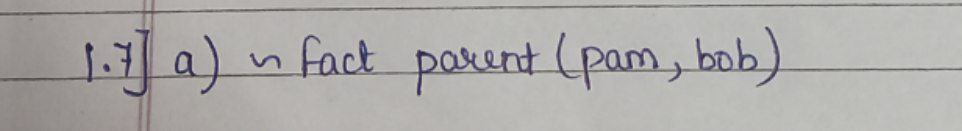 1.7] a) n fact parent (pam, bob)